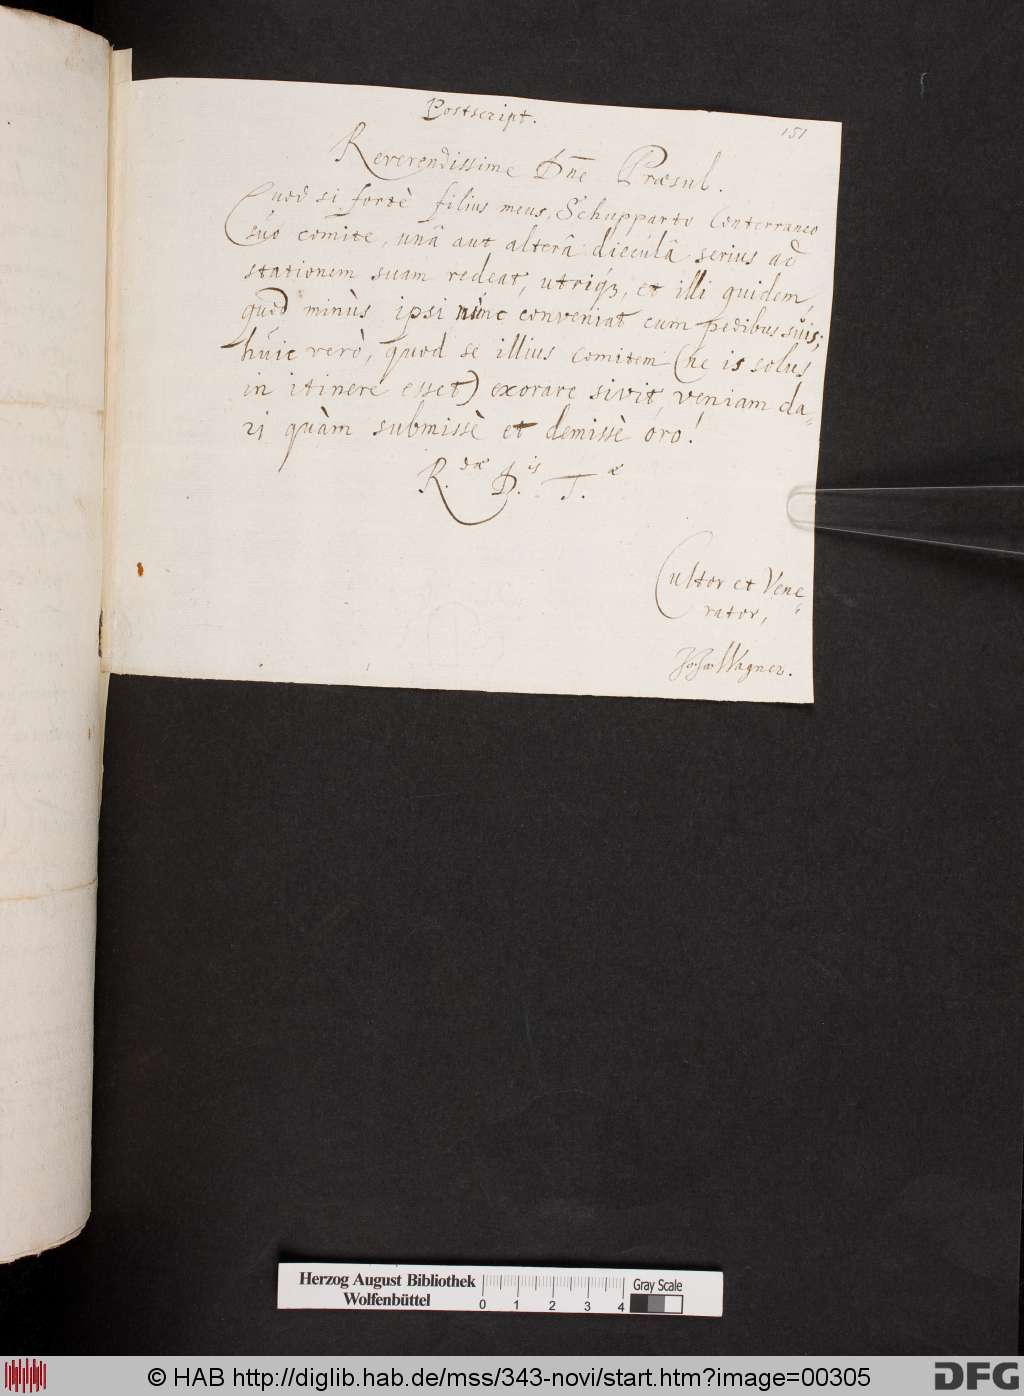 Postscript.
151
Reverendissime Dn̄e Præsul.
Quod si fortè filius meus, Schupparto Conterraneo
suo comite, unâ aut alterâ dieculâ serius ad
stationem suam redeat, utriq́ꝫ, et illi quidem,
quod minùs ipsi nunc conveniat cum pedibus suis;
huic verò, quod se illius comitem (ne is solus
in itinere esset) exorare sivit, veniam da-
ri quàm submissè et demissè oro!
R.dæ D.is T.æ
Cultor et Vene-
rator,
Wagner.
Herzog August Bibliothek
Wolfenbüttel
0 1 2 3 4
Gray Scale
© HAB http://diglib.hab.de/mss/343-novi/start.htm?image=00305
DFG